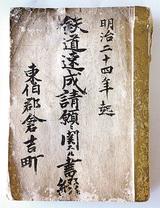 明治二十四年起
鉄道速成請願ニ関スル書綴
東伯郡倉吉町